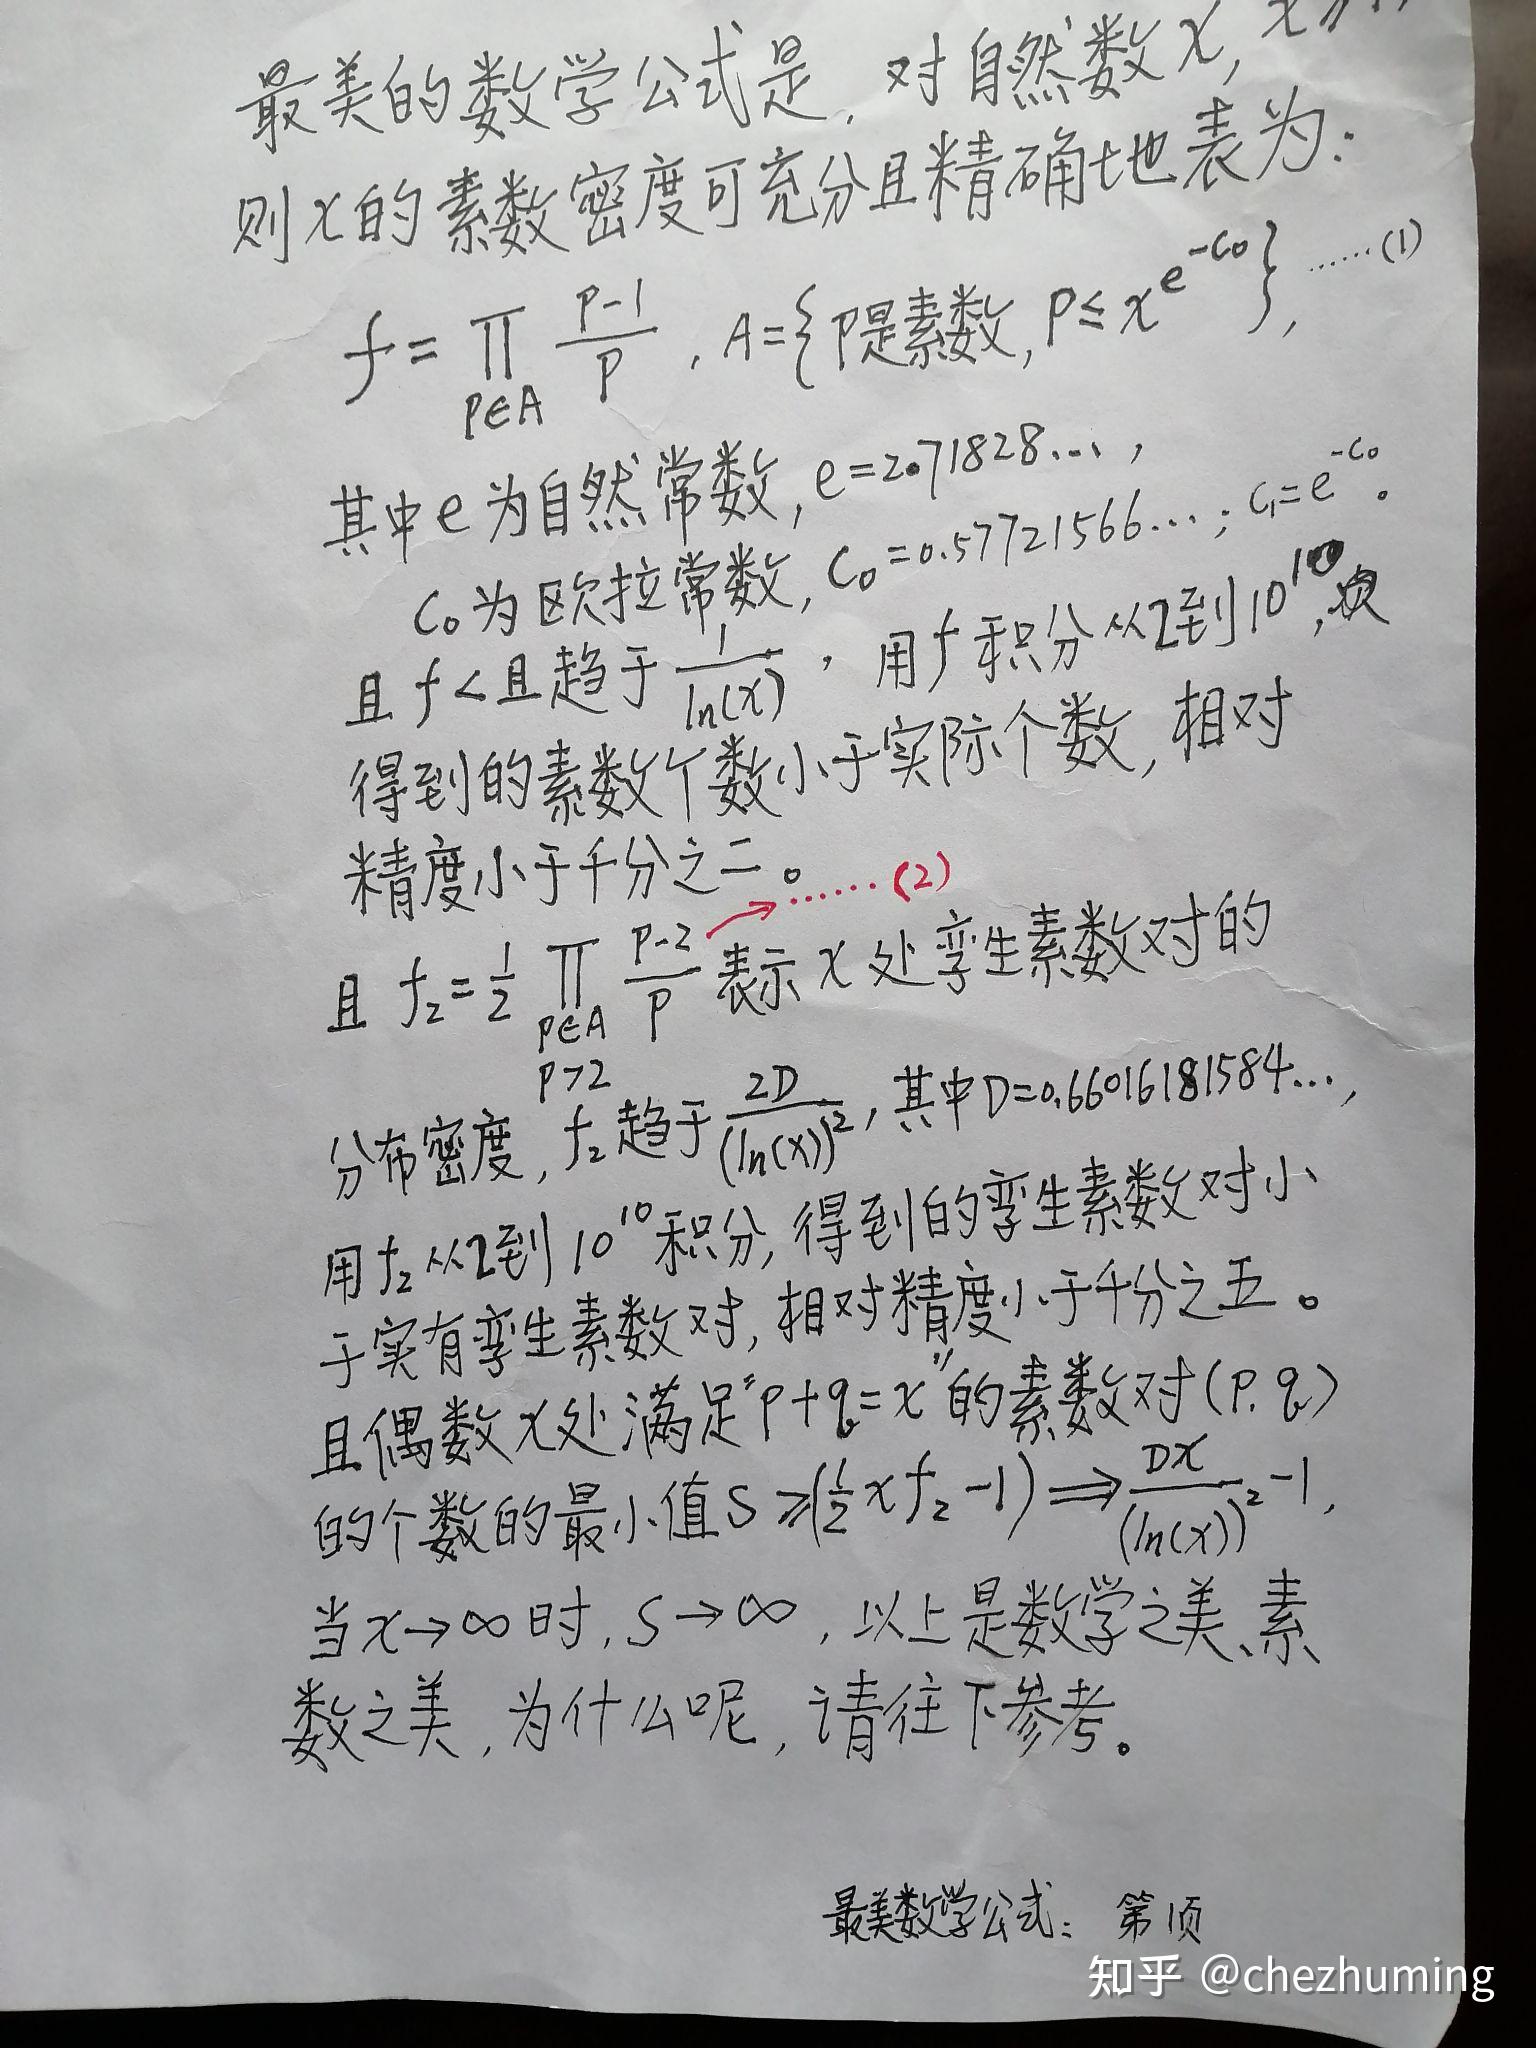 最美的数学公式是,对自然数x,
则x的素数密度可充分且精确地表为:
f=∏_{p∈A} (p-1)/p, A={p是素数, p≤x^{e^{-C₀}}}, ……(1)
其中e为自然常数, e=2.71828…,
C₀为欧拉常数, C₀=0.57721566…; C₁=e^{-C₀}。
且f<且趋于1/ln(x), 用f积分从2到10^{10},
得到的素数个数小于实际个数, 相对
精度小于千分之二。
……(2)
且f₂=1/2 ∏_{p∈A, p>2} (p-2)/p 表示x处孪生素数对的
分布密度, f₂趋于2D/(ln(x))², 其中D=0.66016181584…,
用f₂从2到10^{10}积分, 得到的孪生素数对小
于实有孪生素数对, 相对精度小于千分之五。
且偶数x处满足"p+q=x"的素数对(p,q)
的个数的最小值S≥(1/2xf₂-1)⇒Dx/(ln(x))²-1,
当x→∞时, S→∞, 以上是数学之美、素
数之美, 为什么呢, 请往下参考。
最美数学公式: 第1页
知乎 @chezhuming